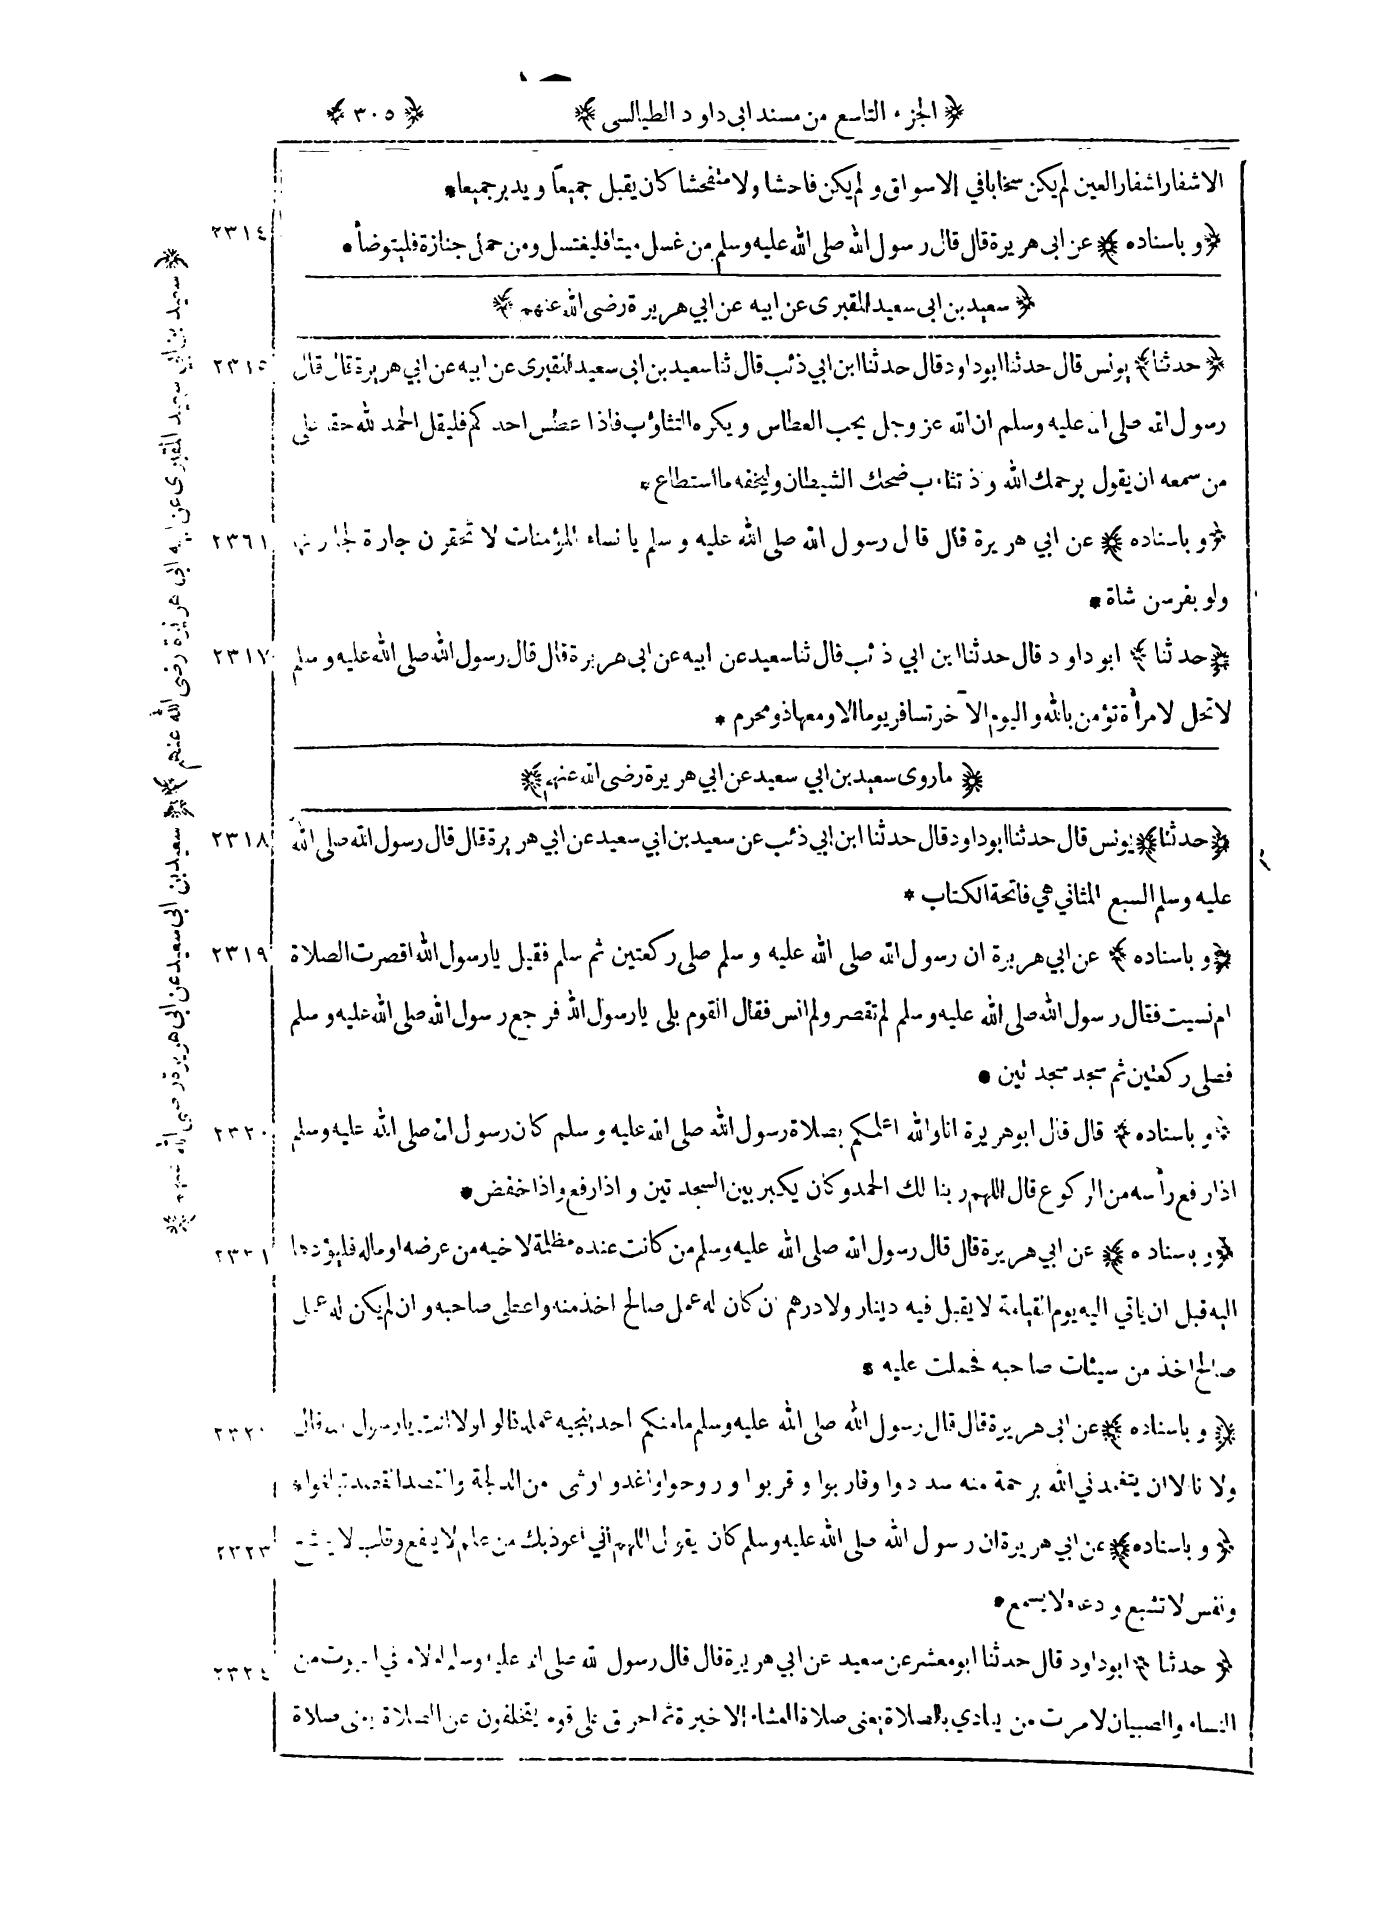 ﴿ الجزء التاسع من مسند ابى داود الطيالسى ﴾ ﴿ ٣٠٥ ﴾
الاشفار اشفار العين لم يكن سخابا في الاسواق و لم يكن فاحشا ولا متفحشا كان يقبل جميعاً ويدبر جميعا*
٢٣١٤ ﴿ و باسناده ﴾ عن ابى هريرة قال قال رسول الله صلى الله عليه وسلم من غسل ميتا فليغتسل ومن حمل جنازة فليتوضأ *
﴿ سعيد بن ابى سعيد المقبرى عن ابيه عن ابي هريرة رضى الله عنهم ﴾
٢٣١٥ ﴿ حدثنا ﴾ يونس قال حدثنا ابو داود قال حدثنا ابن ابي ذئب قال ثنا سعيد بن ابى سعيد المقبرى عن ابيه عن ابي هريرة قال قال
رسول الله صلى الله عليه وسلم ان الله عز وجل يحب العطاس ويكره التثاؤب فاذا عطس احدكم فليقل الحمد لله حقا على
من سمعه ان يقول يرحمك الله و ذ تثاءب ضحك الشيطان وليخفه ما استطاع *
٢٣٦١ ﴿ و باسناده ﴾ عن ابي هريرة قال قال رسول الله صلى الله عليه وسلم يا نساء المؤمنات لا تحقرن جارة لجارتها
ولو بفرسن شاة *
٢٣١٧ ﴿ حدثنا ﴾ ابو داود قال حدثنا ابن ابي ذئب قال ثنا سعيد عن ابيه عن ابى هريرة قال قال رسول الله صلى الله عليه وسلم
لا تحل لامرأة تؤمن بالله واليوم الآخر تسافر يوما الا ومعها ذو محرم *
﴿ ما روى سعيد بن ابي سعيد عن ابي هريرة رضى الله عنهم ﴾
٢٣١٨ ﴿ حدثنا ﴾ يونس قال حدثنا ابو داود قال حدثنا ابن ابي ذئب عن سعيد بن ابي سعيد عن ابي هريرة قال قال رسول الله صلى الله
عليه وسلم السبع المثاني هي فاتحة الكتاب *
٢٣١٩ ﴿ و باسناده ﴾ عن ابي هريرة ان رسول الله صلى الله عليه وسلم صلى ركعتين ثم سلم فقيل يا رسول الله اقصرت الصلاة
ام نسيت فقال رسول الله صلى الله عليه وسلم لم تقصر ولم انس فقال القوم بلى يا رسول الله فرجع رسول الله صلى الله عليه وسلم
فصلى ركعتين ثم سجد سجد تين *
٢٣٢٠ ﴿ و باسناده ﴾ قال قال ابو هريرة انا والله اعلمكم بصلاة رسول الله صلى الله عليه وسلم كان رسول الله صلى الله عليه وسلم
اذا رفع رأسه من الركوع قال اللهم ربنا لك الحمد وكان يكبر بين السجد تين و اذا رفع واذا خفض *
٢٣٢١ ﴿ و باسناده ﴾ عن ابي هريرة قال قال رسول الله صلى الله عليه وسلم من كانت عنده مظلمة لاخيه من عرضه او ماله فليؤدها
اليه قبل ان ياتي اليه يوم القيامة لا يقبل فيه دينار ولا درهم ن كان له عمل صالح اخذ منه واعطى صاحبه و ان لم يكن له عمل
صالح اخذ من سيئات صاحبه فحملت عليه *
٢٣٢٠ ﴿ و باسناده ﴾ عن ابى هريرة قال قال رسول الله صلى الله عليه وسلم ما منكم احد ينجيه عمله قالوا ولا انت يا رسول الله قال
ولا نا لا ان يتغمدني الله برحمة منه سددوا وقاربوا و قربوا و روحوا واغدوا وشى من الدلجة والقصد القصد تبلغوا *
٢٣٢٣ ﴿ و باسناده ﴾ عن ابي هريرة ان رسول الله صلى الله عليه وسلم كان يقول اللهم اني اعوذ بك من علم لا ينفع وقلب لا يخشع
ونفس لا تشبع و دعاء لا يسمع *
٢٣٢٤ ﴿ حدثنا ﴾ ابو داود قال حدثنا ابو معشر عن سعيد عن ابي هريرة قال قال رسول الله صلى الله عليه وسلم لولا ما في البيوت من
النساء والصبيان لامرت من ينادي بالصلاة يعنى صلاة العشاء الاخيرة ثم احرق على قوم يتخلفون عن الصلاة يعنى صلاة
﴿ سعيد بن ابي سعيد المقبرى عن ابيه عن ابى هريرة رضى الله عنهم ﴾ ﴿ سعيد بن ابى سعيد عن ابى هريرة رضى الله عنهم ﴾